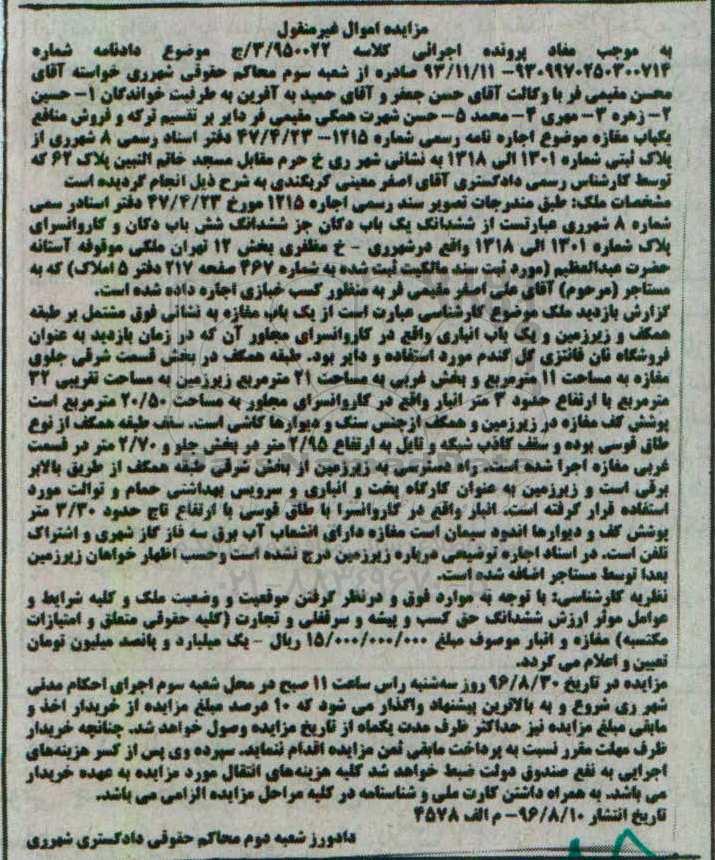 مزایده اموال غیرمنقول
به موجب مفاد پرونده اجرائی کلاسه ۳/۹۵۰۰۲۲/ج موضوع دادنامه شماره
۹۳۰۹۹۷۰۲۵۰۳۰۰۷۱۴- ۹۳/۱۱/۱۱ صادره از شعبه سوم محاکم حقوقی شهرری خواسته آقای
محسن مقیمی فر با وکالت آقای حسن جعفر و آقای حمید به آفرین به طرفیت خواندگان ۱- حسین
۲- زهره ۳- مهری ۴- محمد ۵- حسن شهرت همگی مقیمی فر دایر بر تقسیم ترکه و فروش منافع
یکباب مغازه موضوع اجاره نامه رسمی شماره ۱۲۱۵- ۴۷/۴/۲۳ دفتر اسناد رسمی ۸ شهرری از
پلاک ثبتی شماره ۱۳۰۱ الی ۱۳۱۸ به نشانی شهر ری خ حرم مقابل مسجد خاتم النبین پلاک ۶۲ که
توسط کارشناس رسمی دادگستری آقای اصغر معینی کربکندی به شرح ذیل انجام گردیده است
مشخصات ملک: طبق مندرجات تصویر سند رسمی اجاره ۱۲۱۵ مورخ ۴۷/۴/۲۳ دفتر اسنادر سمی
شماره ۸ شهرری عبارتست از ششدانک یک باب دکان جز ششدانک شش باب دکان و کاروانسرای
پلاک شماره ۱۳۰۱ الی ۱۳۱۸ واقع درشهرری - خ مظفری بخش ۱۲ تهران ملکی موقوفه آستانه
حضرت عبدالعظیم (مورد ثبت سند مالکیت ثبت شده به شماره ۴۶۷ صفحه ۲۱۷ دفتر ۵ املاک) که به
مستاجر (مرحوم) آقای علی اصغر مقیمی فر به منظور کسب خبازی اجاره داده شده است.
گزارش بازدید ملک موضوع کارشناسی عبارت است از یک باب مغازه به نشانی فوق مشتمل بر طبقه
همکف و زیرزمین و یک باب انباری واقع در کاروانسرای مجاور آن که در زمان بازدید به عنوان
فروشگاه نان فانتزی گل گندم مورد استفاده و دایر بود. طبقه همکف در بخش قسمت شرقی جلوی
مغازه به مساحت ۱۱ مترمربع و بخش غربی به مساحت ۲۱ مترمربع زیرزمین به مساحت تقریبی ۳۲
مترمربع با ارتفاع حدود ۳ متر انبار واقع در کاروانسرای مجاور به مساحت ۲۰/۵۰ مترمربع است
پوشش کف مغازه در زیرزمین و همکف ازجنس سنک و دیوارها کاشی است. سقف طبقه همکف از نوع
طاق قوسی بوده و سقف کاذب شبکه و تایل به ارتفاع ۲/۹۵ متر در بخش جلو و ۲/۷۰ متر در قسمت
غربی مغازه اجرا شده است. راه دسترسی به زیرزمین از بخش شرقی طبقه همکف از طریق بالابر
برقی است و زیرزمین به عنوان کارگاه پخت و انباری و سرویس بهداشتی حمام و توالت مورد
استفاده قرار گرفته است. انبار واقع در کاروانسرا با طاق قوسی با ارتفاع تاج حدود ۳/۳۰ متر
پوشش کف و دیوارها اندود سیمان است مغازه دارای انشعاب آب برق سه فاز گاز شهری و اشتراک
تلفن است. در اسناد اجاره توضیحی درباره زیرزمین درج نشده است وحسب اظهار خواهان زیرزمین
بعدا توسط مستاجر اضافه شده است.
نظریه کارشناسی: با توجه به موارد فوق و درنظر گرفتن موقعیت و وضعیت ملک و کلیه شرایط و
عوامل موثر ارزش ششدانک حق کسب و پیشه و سرقفلی و تجارت (کلیه حقوقی متعلق و امتیازات
مکتسبه) مغازه و انبار موصوف مبلغ ۱۵/۰۰۰/۰۰۰/۰۰۰ ریال - یک میلیارد و پانصد میلیون تومان
تعیین و اعلام می گردد.
مزایده در تاریخ ۹۶/۸/۳۰ روز سه‌شنبه راس ساعت ۱۱ صبح در محل شعبه سوم اجرای احکام مدنی
شهر ری شروع و به بالاترین پیشنهاد واگذار می شود که ۱۰ درصد مبلغ مزایده از خریدار اخذ و
مابقی مبلغ مزایده نیز حداکثر ظرف مدت یکماه از تاریخ مزایده وصول خواهد شد. چنانچه خریدار
ظرف مهلت مقرر نسبت به پرداخت مابقی ثمن مزایده اقدام ننماید. سپرده وی پس از کسر هزینه‌های
اجرایی به نفع صندوق دولت ضبط خواهد شد کلیه هزینه‌های انتقال مورد مزایده به عهده خریدار
می باشد. به همراه داشتن کارت ملی و شناسنامه در کلیه مراحل مزایده الزامی می باشد.
تاریخ انتشار ۹۶/۸/۱۰- م الف ۴۵۷۸
دادورز شعبه دوم محاکم حقوقی دادگستری شهرری